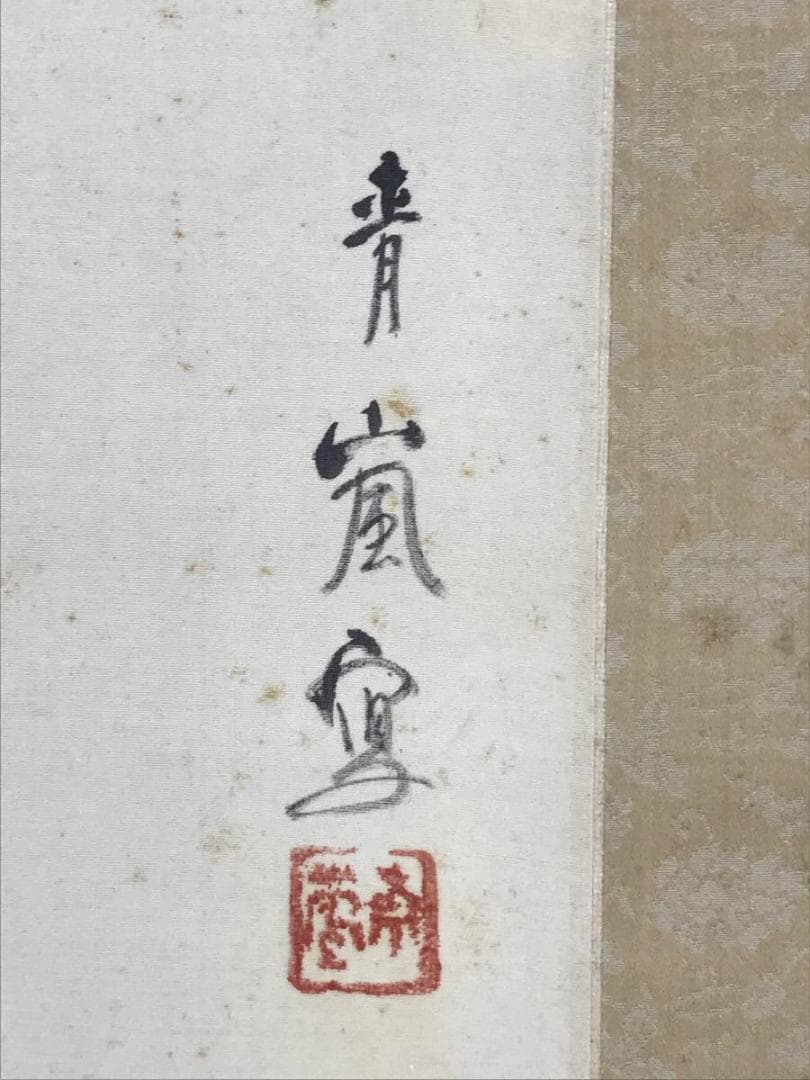 青嵐寫